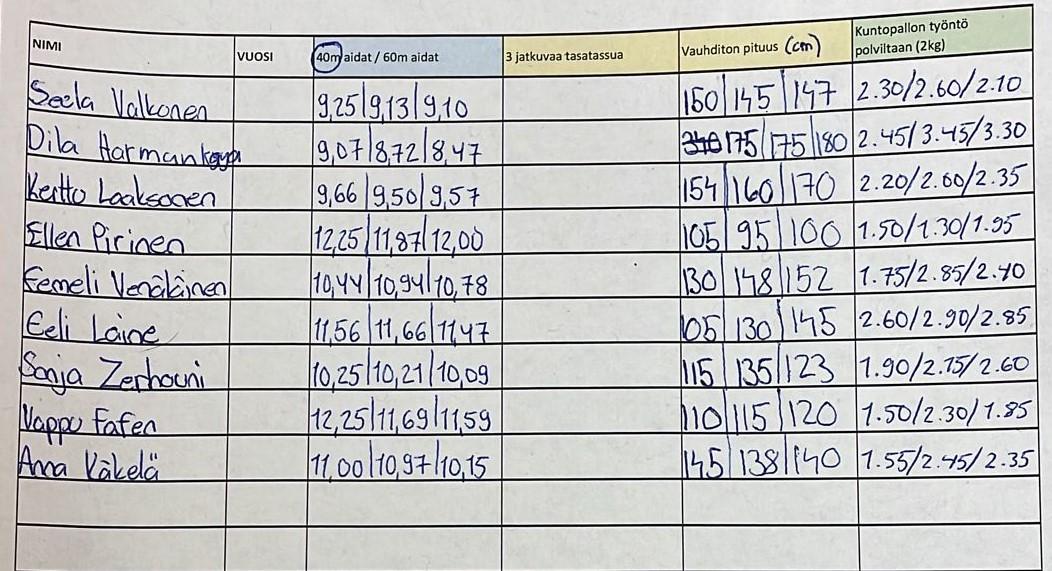 NIMI VUOSI 40m aidat / 60m aidat 3 jatkuvaa tasatassua Vauhditon pituus (cm) Kuntopallon työntö polviltaan (2kg)
Seela Valkonen 9,25|9,13|9,10 150|145|147 2.30/2.60/2.10
Dila Harmankaya 9,07|8,72|8,47 175|175|180 2.45/3.45/3.30
Kertto Laaksonen 9,66|9,50|9,57 154|160|170 2.20/2.60/2.35
Ellen Pirinen 12,25|11,87|12,00 105|95|100 1.50/1.30/1.95
Eemeli Venäläinen 10,44|10,94|10,78 130|148|152 1.75/2.85/2.40
Eeli Laine 11,56|11,66|11,47 105|130|145 2.60/2.90/2.85
Sonja Zerhouni 10,25|10,21|10,09 115|135|123 1.90/2.75/2.60
Vappu Fafen 12,25|11,69|11,59 110|115|120 1.50/2.30/1.85
Anna Käkelä 11,00|10,97|10,15 145|138|140 1.55/2.45/2.35